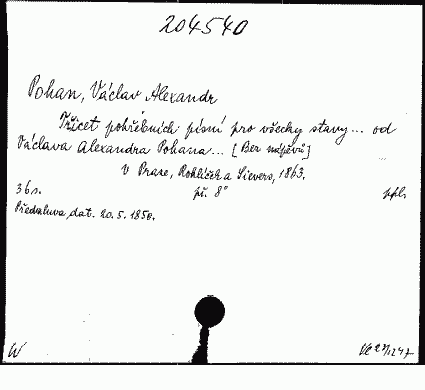 204540
Pohan, Václav Alexandr
Třicet pohřebních písní pro všecky stavy... od
Václava Alexandra Pohana... [Bez nápěvů]
V Praze, Rohlíček a Sievers, 1863.
36 s. př. 8° ppl.
Předmluva, dat. 20. 5. 1850.
W